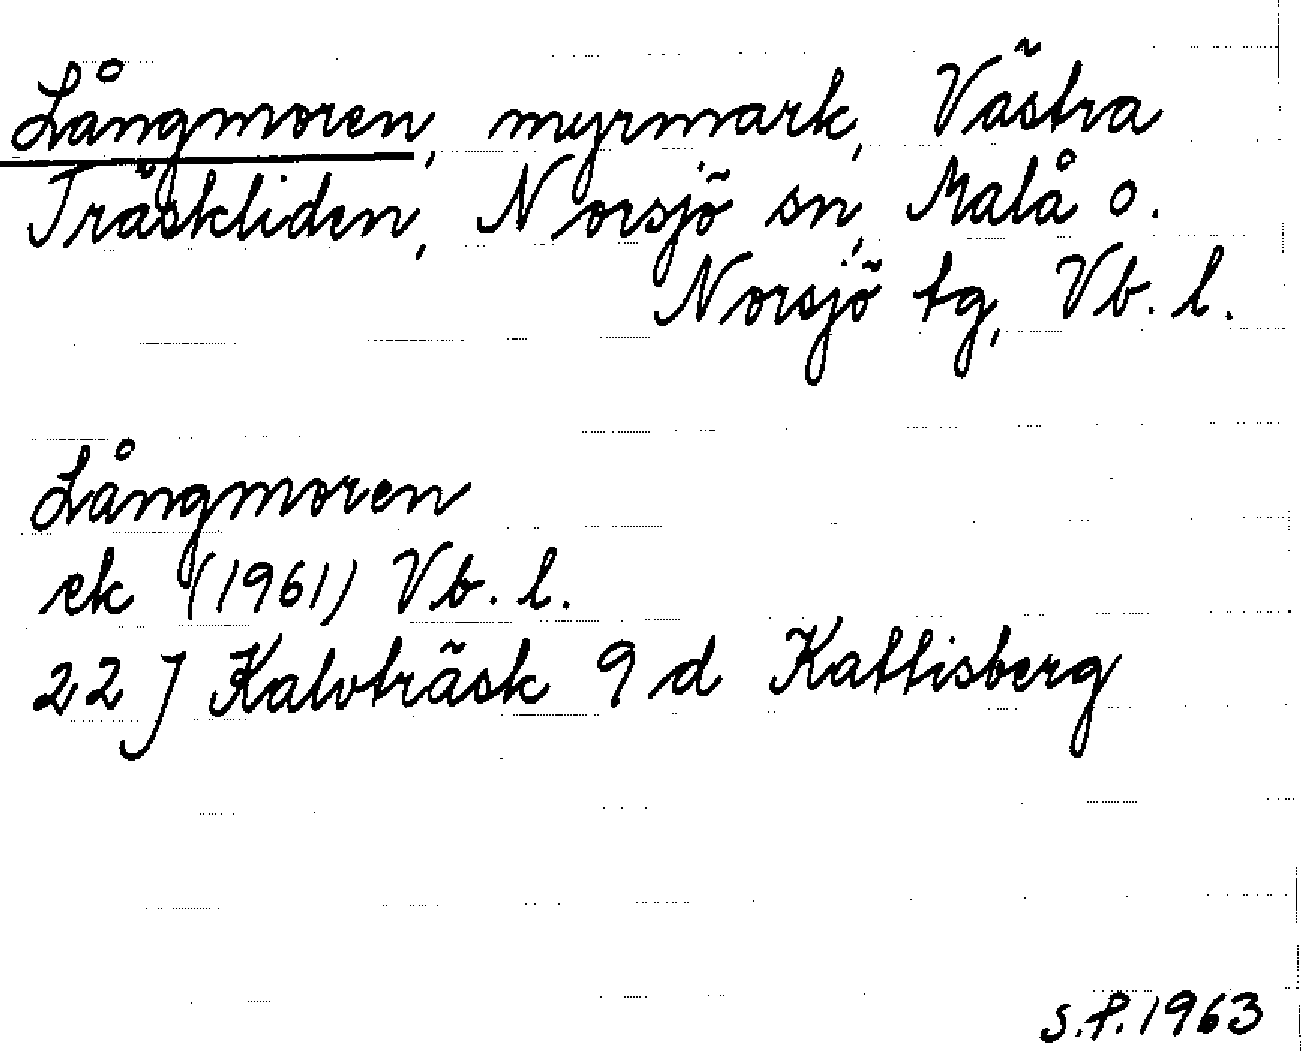 Långmoren, myrmark, Västra
Träskliden, Norsjö sn, Malå o.
Norsjö tg, Vb. l.
Långmoren
ek (1961) Vb. l.
22 J Kalvträsk 9 d Kattisberg
S.P. 1963